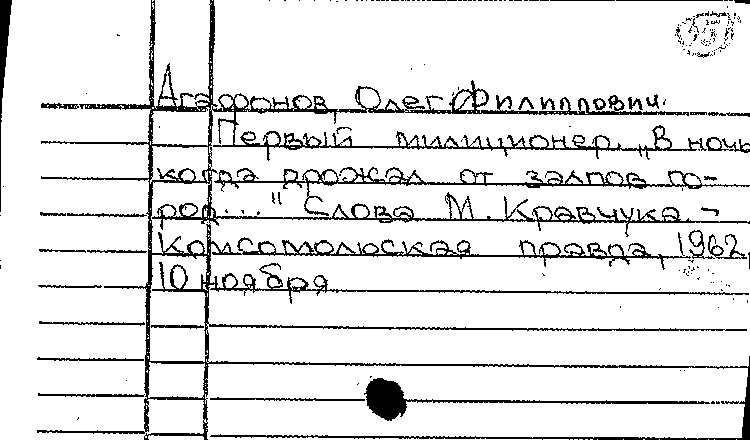 35
Агафонов, Олег Филиппович.
Первый милиционер. „В ночь
когда дрожал от залпов го-
род..." Слова М. Кравчука. -
Комсомолюская правда, 1962,
10 ноября